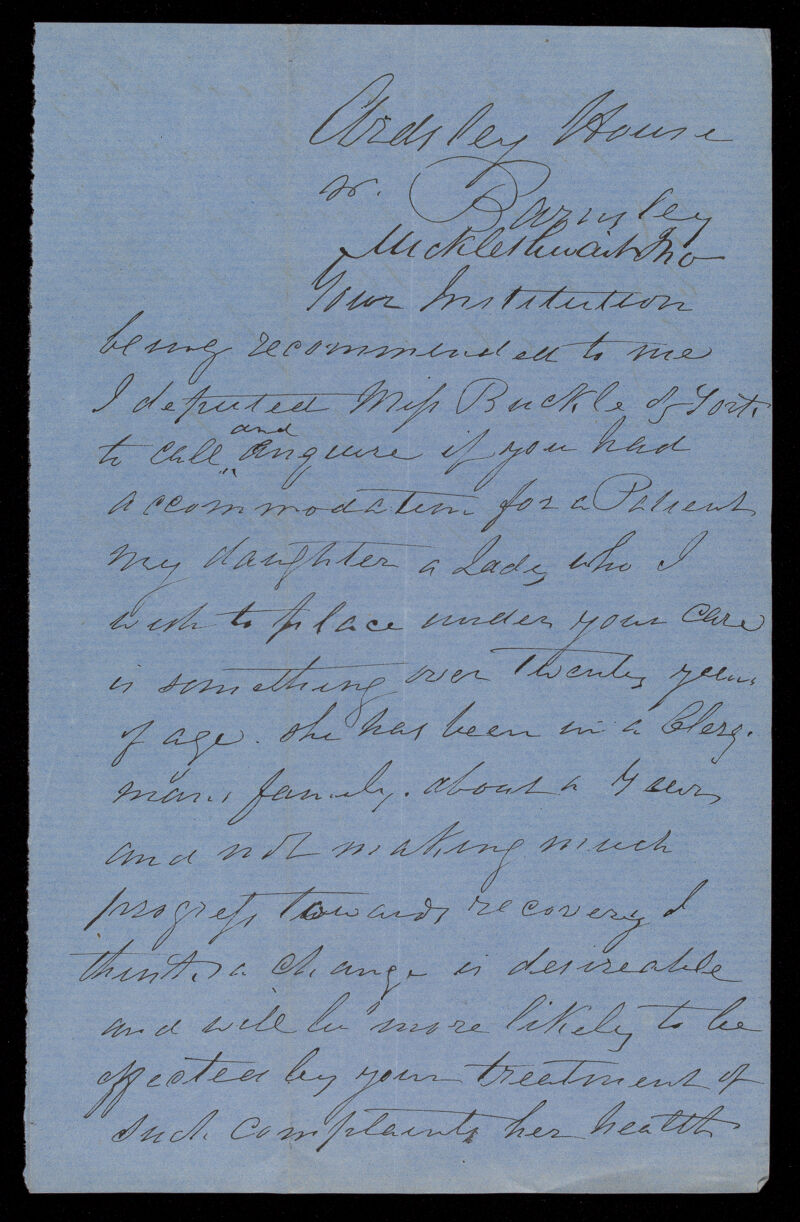 Ardsley House
nr. Barnsley
Micklethwaite No
Your Institution
being recommended to me
I deputed Miss Buckle of York
to call and enquire if you had
accommodation for a Patient
my daughter a Lady who I
wish to place under your care
is something over twenty years
of age. she has been in a Clergy-
mans family. about a Year
and not making much
progress towards recovery I
think a change is desireable
and will be more likely to be
effected by your treatment of
such complaints her health